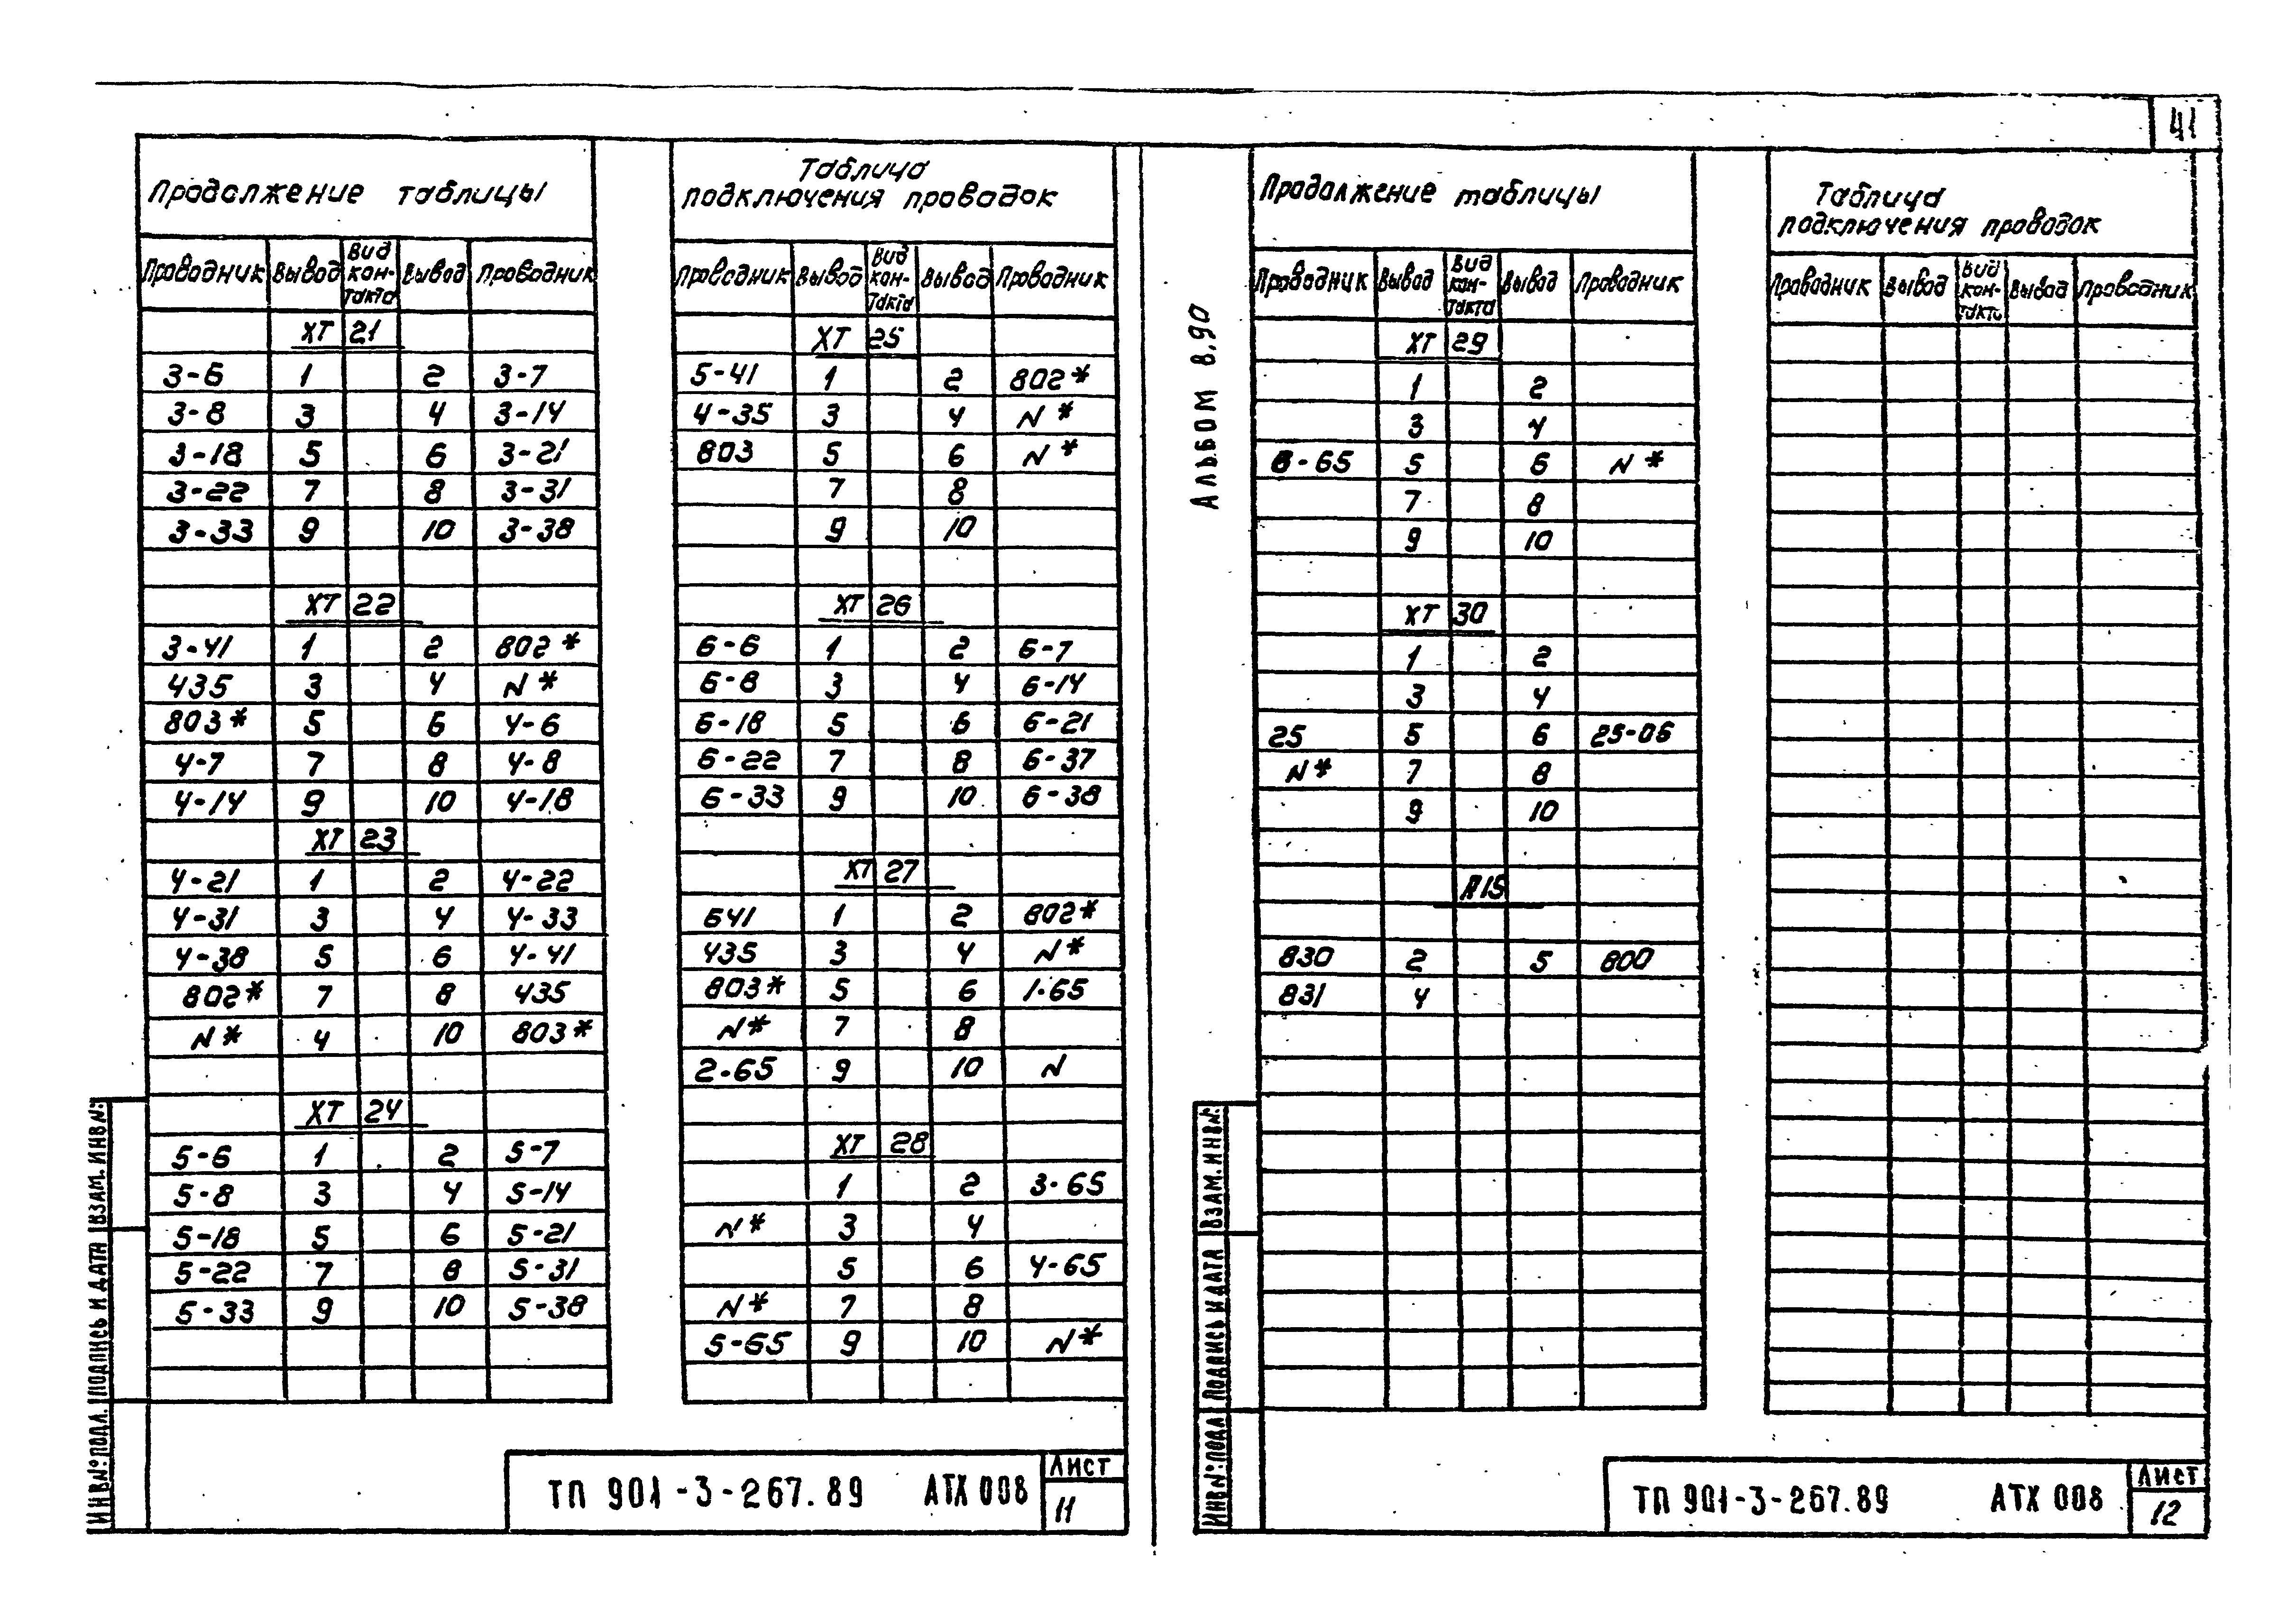 41
Продолжение таблицы
Проводник Вывод Вид кон-такта Вывод Проводник
ХТ 21
3-6 1 2 3-7
3-8 3 4 3-14
3-18 5 6 3-21
3-22 7 8 3-31
3-33 9 10 3-38
ХТ 22
3-41 1 2 802*
435 3 4 N*
803* 5 6 4-6
4-7 7 8 4-8
4-14 9 10 4-18
ХТ 23
4-21 1 2 4-22
4-31 3 4 4-33
4-38 5 6 4-41
802* 7 8 435
N* 4 10 803*
ХТ 24
5-6 1 2 5-7
5-8 3 4 5-14
5-18 5 6 5-21
5-22 7 8 5-31
5-33 9 10 5-38
Таблица
подключения проводок
Проводник Вывод Вид кон-такта Вывод Проводник
ХТ 25
5-41 1 2 802*
4-35 3 4 N*
803 5 6 N*
7 8
9 10
ХТ 26
6-6 1 2 6-7
6-8 3 4 6-14
6-18 5 6 6-21
6-22 7 8 6-37
6-33 9 10 6-38
ХТ 27
641 1 2 802*
435 3 4 N*
803* 5 6 1-65
N* 7 8
2-65 9 10 N
ХТ 28
1 2 3-65
N* 3 4
5 6 4-65
N* 7 8
5-65 9 10 N*
ИНВ№ПОДЛ. ПОДПИСЬ И ДАТА ВЗАМ.ИНВ№
ТП 901-3-267.89 АТХ 008
Лист
11
АЛЬБОМ 8,90
Продолжение таблицы
Проводник Вывод Вид кон-такта Вывод Проводник
ХТ 29
1 2
3 4
6-65 5 6 N*
7 8
9 10
ХТ 30
1 2
3 4
25 5 6 25-06
N* 7 8
9 10
R15
830 2 5 800
831 4
Таблица
подключения проводок
Проводник Вывод Вид кон-такта Вывод Проводник
ИНВ№ПОДЛ ПОДПИСЬ И ДАТА ВЗАМ.ИНВ№
ТП 901-3-267.89 АТХ 008
Лист
12